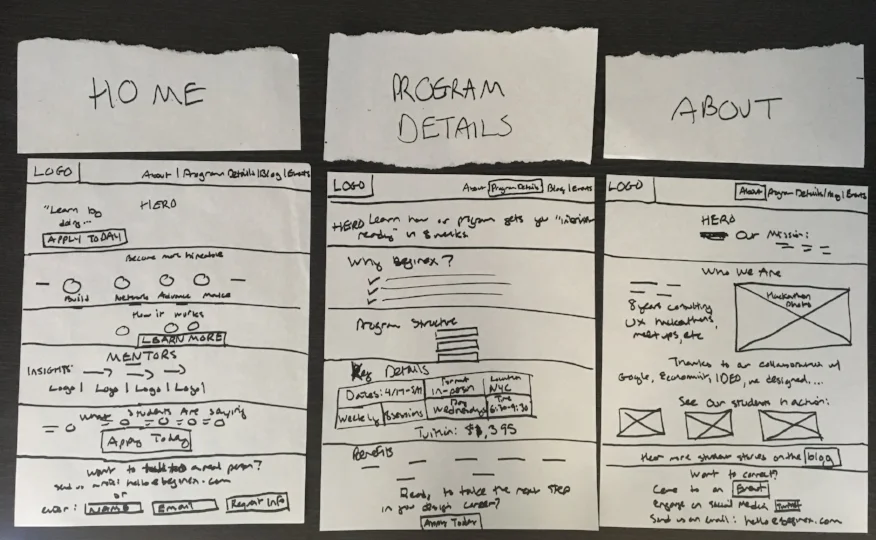 HOME
LOGO
About | Program Details | Blog | Events
HERO
"Learn by
doing...
APPLY TODAY
Become more hireable
Build Network Advance
How it works
LEARN MORE
MENTORS
INSIGHTS
Logo | Logo | Logo | Logo |
What Students Are Saying
Apply Today
Want to talk to a real person?
Send us email: hello@beginex.com
or
enter: NAME Email Request Info
PROGRAM
DETAILS
LOGO
About Program Details Blog | Events
HERO Learn how our program gets you "interview
ready" in 8 weeks
Why beginex?
Program Structure
Key Details
Dates: 4/19-
Format
in-person
Location
NYC
Weekly
sessions
Day
Wednesdays
Time
6:30-9:30
Tuition: $1,395
Benefits
Ready to take the next step
in your design career?
Apply Today
ABOUT
LOGO
About Program Details | Blog | Events
HERO
Our Mission:
Who We Are
8 years consulting
UX hackathons,
meetups, etc
Hackathon
photo
Thanks to our collaboration w/
Google, Economist, IDEO, we designed....
See Our students in action:
Hear more student stories on the blog
Want to connect?
Come to an Event
engage on social Media Twitter
Send us an Email: hello@beginex.com